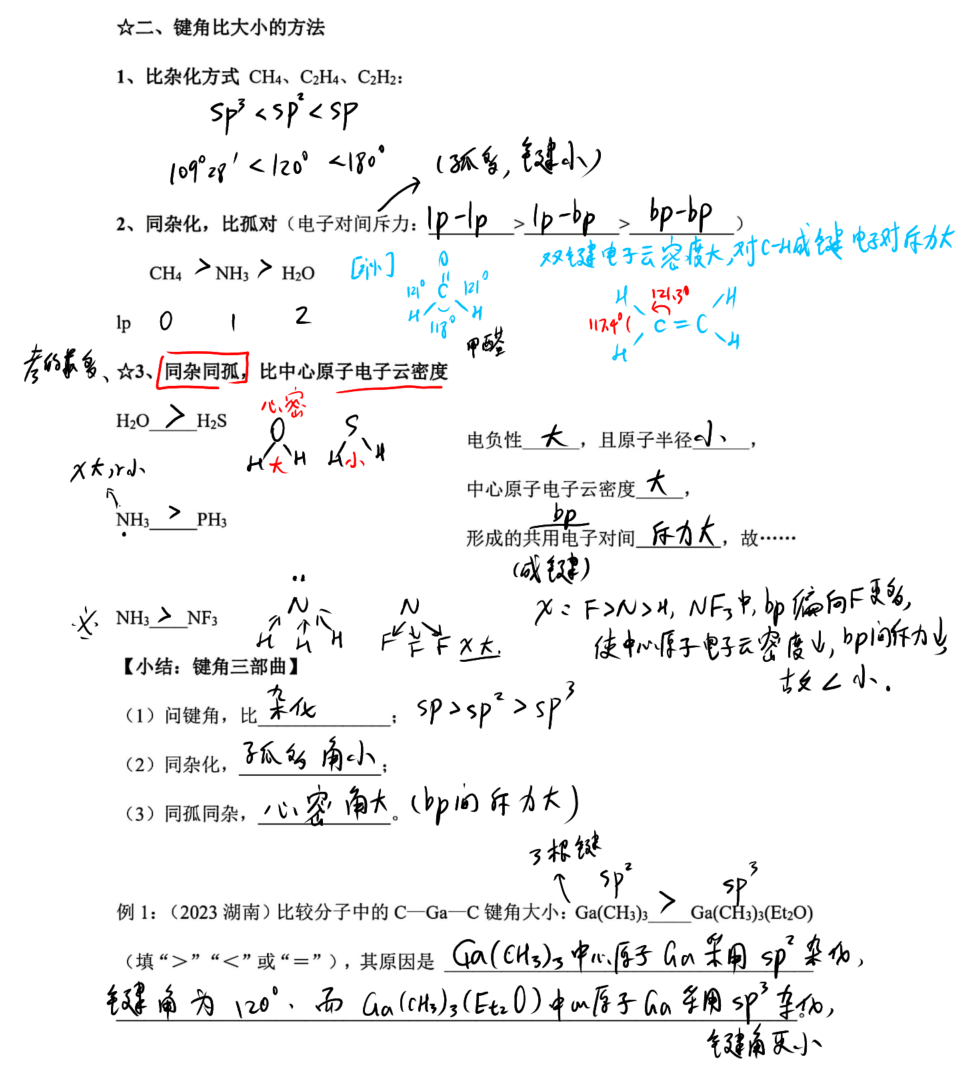 ☆二、键角比大小的方法
1、比杂化方式 CH₄、C₂H₄、C₂H₂：
sp³ < sp² < sp
109°28′ < 120° < 180°
（孤多，键小）
2、同杂化，比孤对（电子对间斥力：lp-lp > lp-bp > bp-bp）
双键电子云密度大，对C-H成键电子对斥力大
CH₄ > NH₃ > H₂O
lp 0 1 2
O
121° C 121°
H 118° H
甲醛
H 121.3° H
117.4° C = C
H H
考的最多、☆3、同杂同孤，比中心原子电子云密度
心密
H₂O > H₂S
O
H 大 H
S
H 小 H
电负性 大 ，且原子半径 小 ，
χ大，r小
中心原子电子云密度 大 ，
NH₃ > PH₃
bp
形成的共用电子对间 斥力大 ，故……
（成键）
※ NH₃ > NF₃
N
H H H
N
F F F χ大.
χ：F>N>H，NF₃中，bp偏向F更多，
使中心原子电子云密度↓，bp间斥力↓
故∠小.
【小结：键角三部曲】
（1）问键角，比 杂化 ； sp>sp²>sp³
（2）同杂化， 孤多 角小 ；
（3）同孤同杂， 心密 角大 。（bp间斥力大）
3根键
sp² sp³
例1：（2023 湖南）比较分子中的 C—Ga—C 键角大小：Ga(CH₃)₃ > Ga(CH₃)₃(Et₂O)
（填“>”“<”或“=”），其原因是 Ga(CH₃)₃中心原子Ga采用sp²杂化，
键角为120°．而Ga(CH₃)₃(Et₂O)中心原子Ga采用sp³杂化，
键角更小